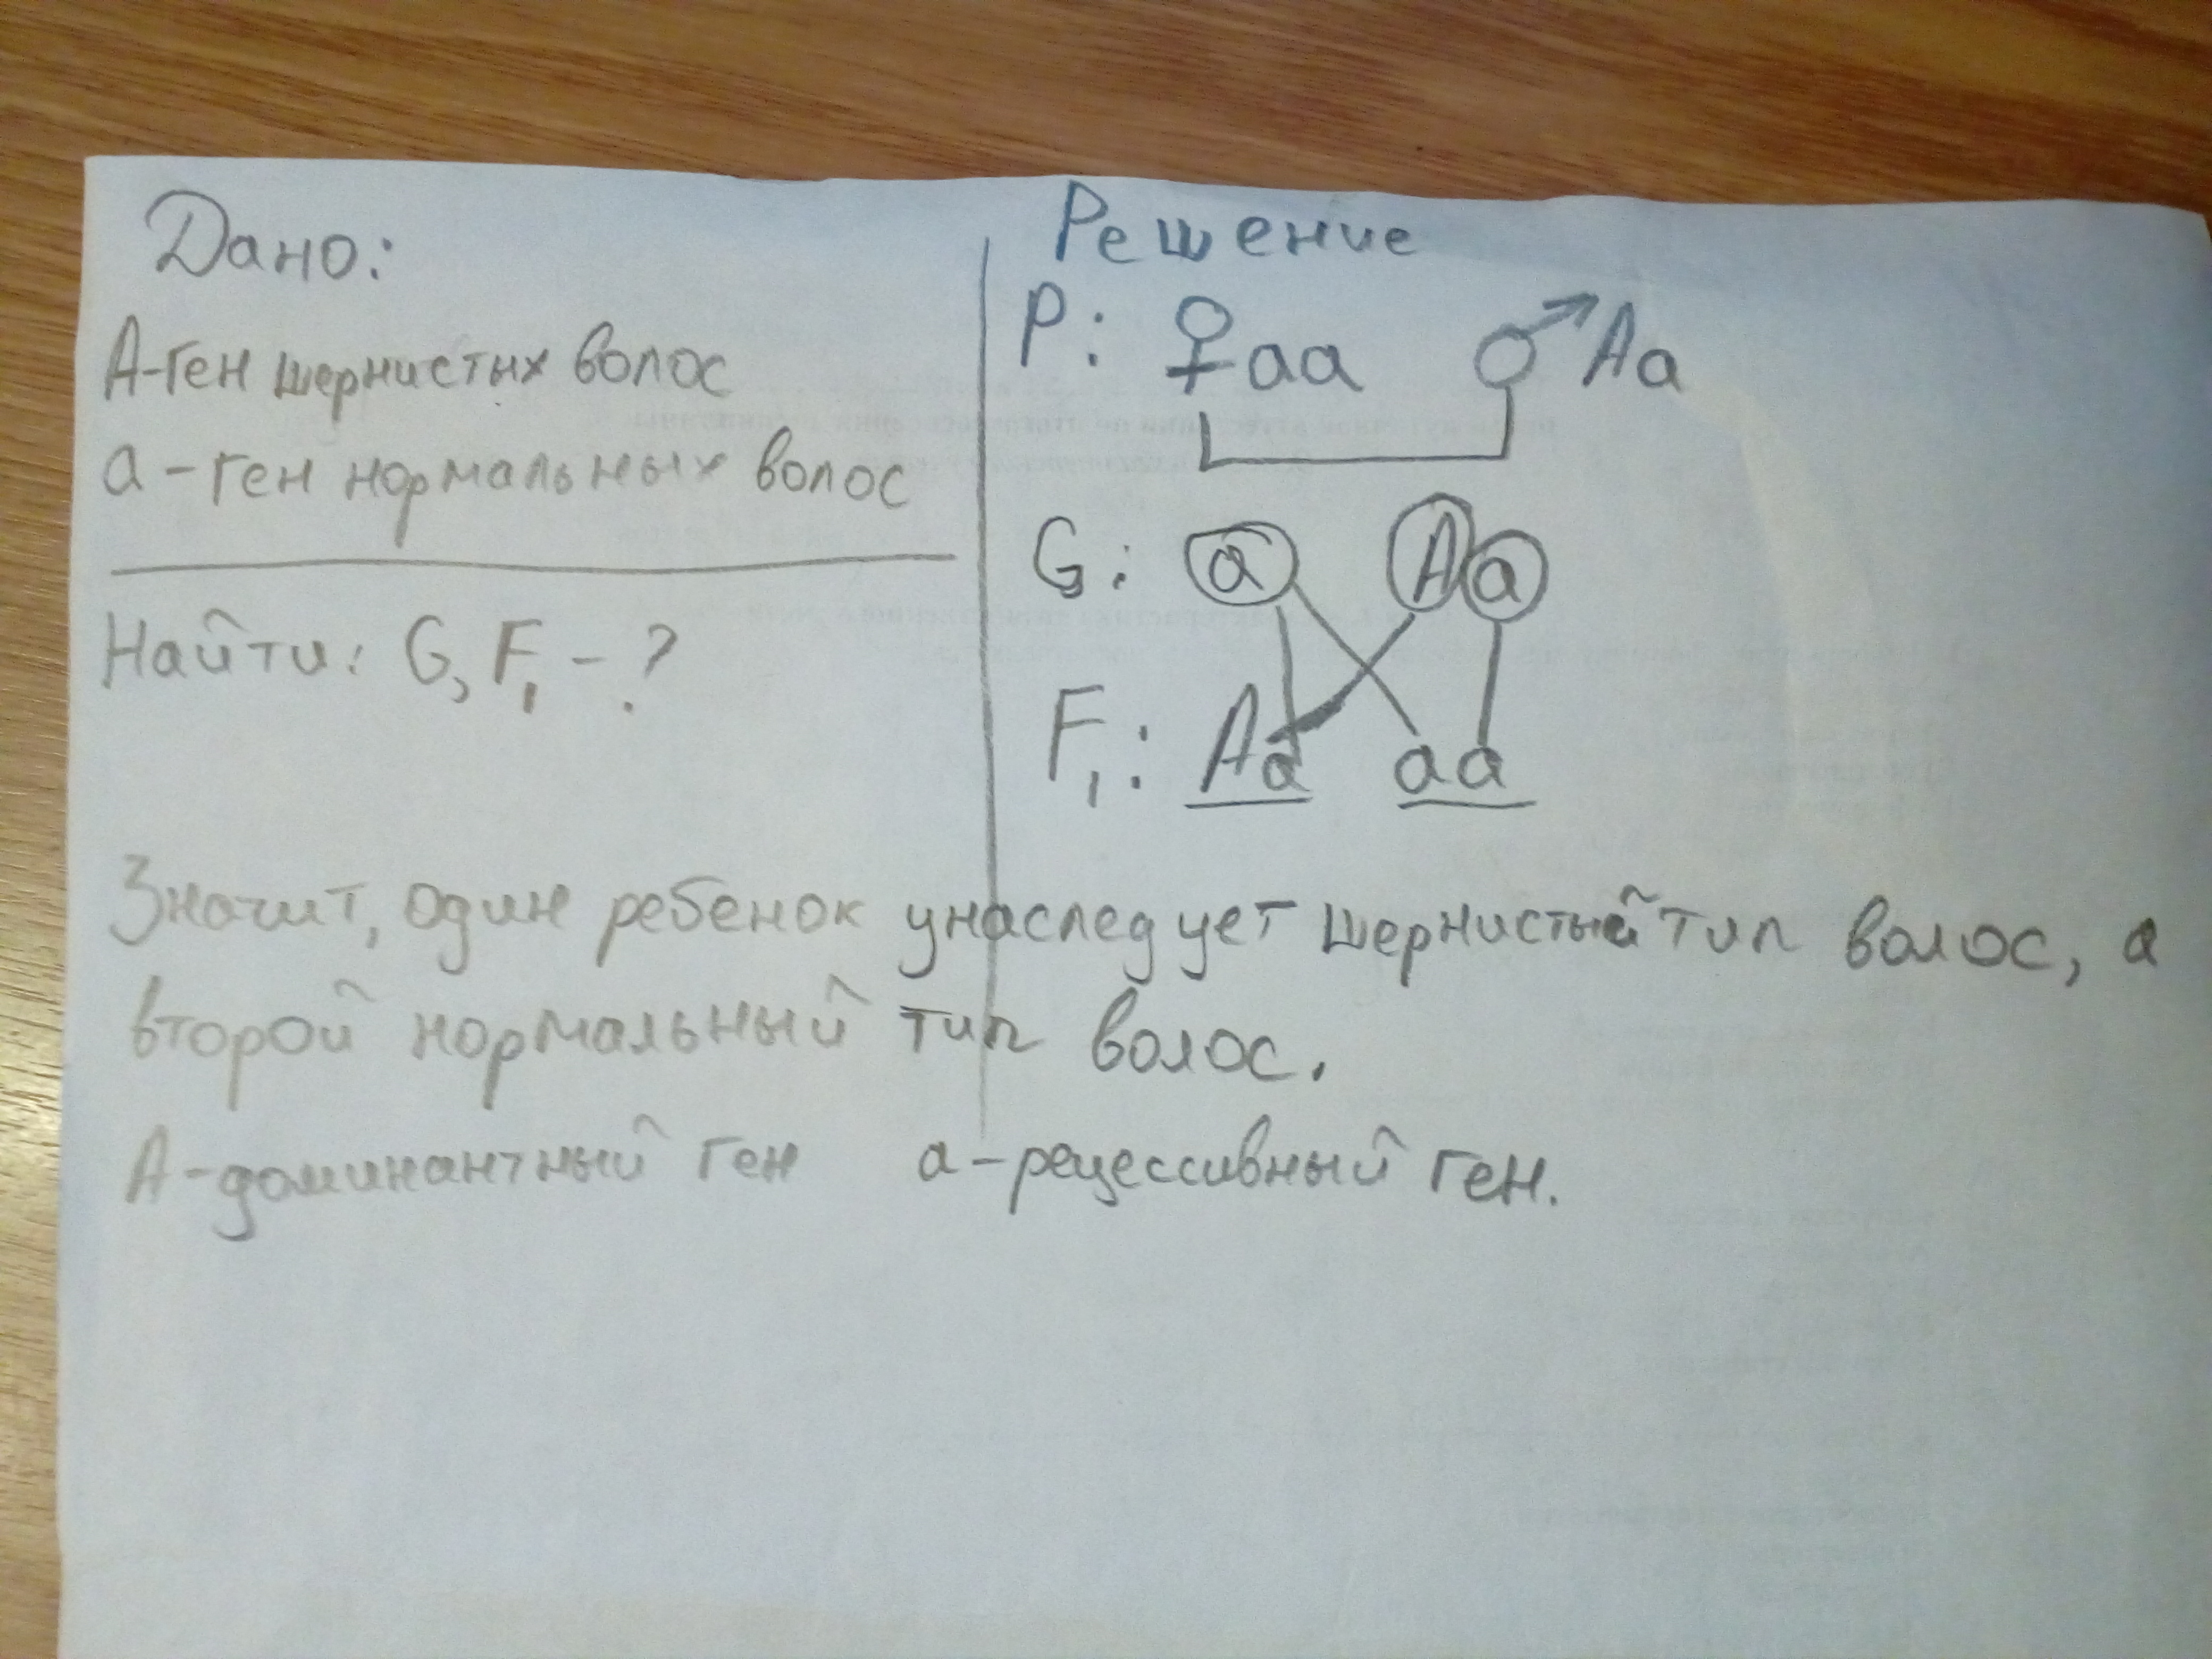 Дано:
А-ген шернистых волос
а - ген нормальных волос
Найти: G, F₁ - ?
Решение
P: ♀ аа ♂ Аа
G: а А а
F₁: Аа аа
Значит, один ребенок унаследует шернистый тип волос, а
второй нормальный тип волос.
А-доминантный ген а-рецессивный ген.